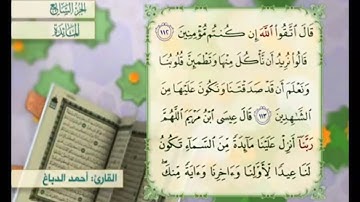 الجزء السابع
المائدة
قَالَ ٱتَّقُوا۟ ٱللَّهَ إِن كُنتُم مُّؤْمِنِينَ ١١٢
قَالُوا۟ نُرِيدُ أَن نَّأْكُلَ مِنْهَا وَتَطْمَئِنَّ قُلُوبُنَا
وَنَعْلَمَ أَن قَدْ صَدَقْتَنَا وَنَكُونَ عَلَيْهَا مِنَ
ٱلشَّـٰهِدِينَ ١١٣ قَالَ عِيسَى ٱبْنُ مَرْيَمَ ٱللَّهُمَّ
رَبَّنَآ أَنزِلْ عَلَيْنَا مَآئِدَةً مِّنَ ٱلسَّمَآءِ تَكُونُ
لَنَا عِيدًا لِّأَوَّلِنَا وَءَاخِرِنَا وَءَايَةً مِّنكَ ۖ
القارئ: أحمد الدباغ